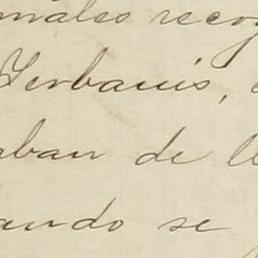 males recog
Yerbanis,
aban de ll
ando se